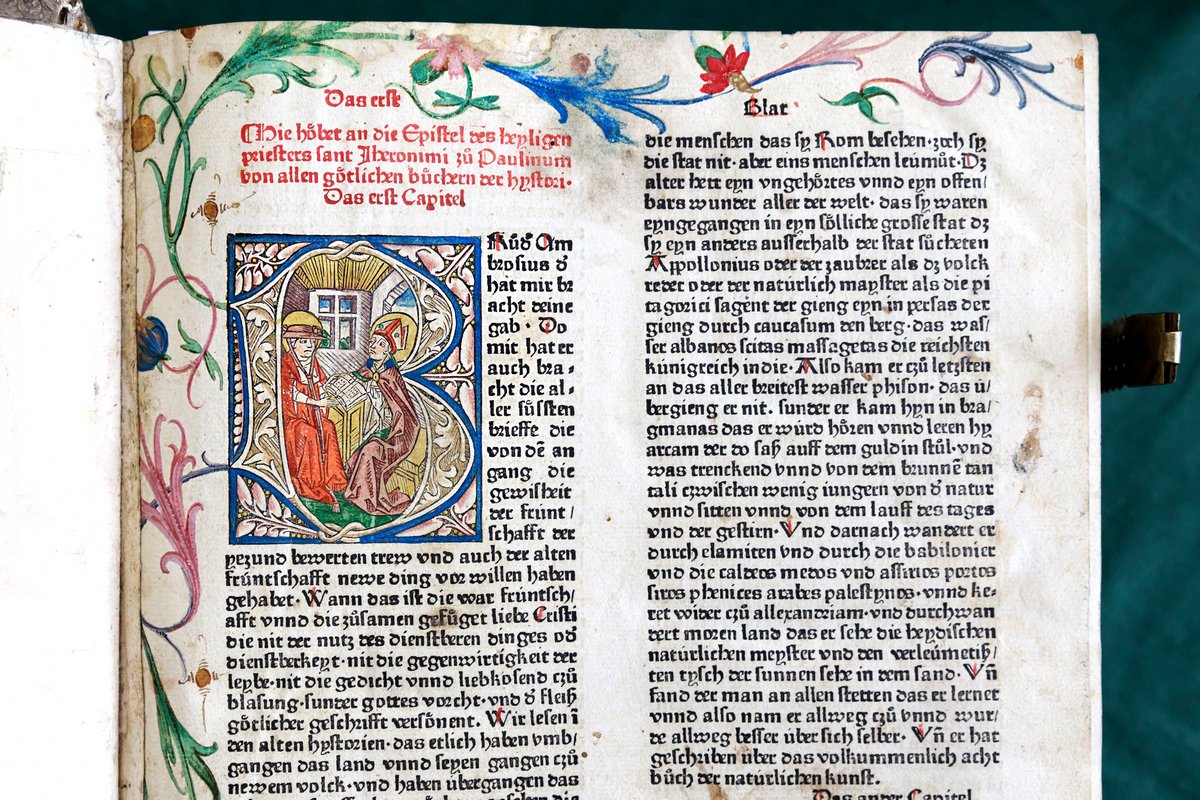 Das erst
Hie höbet an die Epistel des heyligen
priesters sant Jheronimi zů Paulinum
von allen götlichen bůchern der hystori·
Das erst Capitel
Růd Am
brosius d
hat mir br
acht deine
gab · Do
mit hat er
auch bra ⸗
cht die al ⸗
ler sůssten
brieffe die
von dē an
gang die
gewisheit
der frúnt /
schafft der
yezund bewerten trew vnd auch der alten
frúntschafft newe ding vor willen haben
gehabet· Wann das ist die war frúntsch/
afft vnnd die zůsamen gefůget liebe Cristi
die nit der nutz des dienstberen dinges od
dienstberkeyt· nit die gegenwirtigkeit der
leybe· nit die gedicht vnnd liebkosend czů
blasung· sunder gottes vorcht· vnd d fleiß
götlicher geschrifft versönent. Wir lesen ī
den alten hystorien· das etlich haben vmb/
gangen das land vnnd seyen gangen czů
newem volck· vnd haben úbergangen das
Blat
die menschen das sy Rom besehen· zoch sy
die stat nit· aber eins menschen leúmůt· Dz
alter hett eyn vngehörtes vnnd eyn offen/
bars wunder aller der welt· das sy waren
eyngegangen in eyn sölliche grosse stat dz
sy eyn anders ausserhalb der stat sůcheten
Appollonius oder der zaubrer als dz volck
redet oder der natúrlich mayster als die pi
tagorici sagent der gieng eyn in persas der
gieng durch caucasum den berg· das was/
ser albanos scitas massagetas die reichsten
kúnigreich indie· Also kam er czů letzsten
an das aller breitest wasser phison· das ú/
bergieng er nit. sunder er kam hyn in bra/
gmanas das er wúrd hören vnnd leren hy
arcam der do saß auff dem guldin stůl· vnd
was trenckend vnnd von dem brunnē tan
tali czwischen wenig iungern von d natur
vnnd sitten vnnd von dem lauff des tages
vnd der gestirn· Vnd darnach wandert er
durch elamiten vnd durch die babilonier
vnd die caldeos medos vnd assirios portos
siros phenices arabes palestynos· vnnd ke⸗
ret wider czů allexandriam· vnd durchwan
dert moren land das er sehe die heydischen
natúrlichen meyster vnd den verleúmetiß/
ten tysch der sunnen sehe in dem sand. Vn̄
fand der man an allen stetten das er lernet
vnnd also nam er allweg czů vnnd wur/
de allweg besser úber sich selber· Vn̄ er hat
geschriben úber das volkummenlich acht
bůch der natúrlichen kunst.
Das ander Capitel